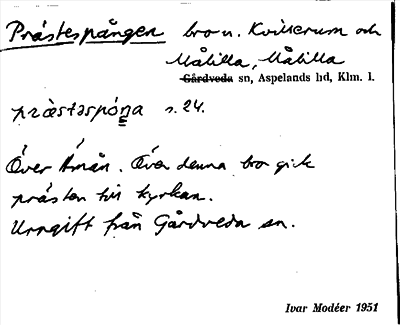 Prästespången bro n. Kvillerum och
Målilla, Målilla
Gårdveda sn, Aspelands hd, Klm. l.
præstəspóŋa s. 24.
Över Åmån. Över denna bro gick
prästen till kyrkan.
Urngift från Gårdveda sn.
Ivar Modéer 1951